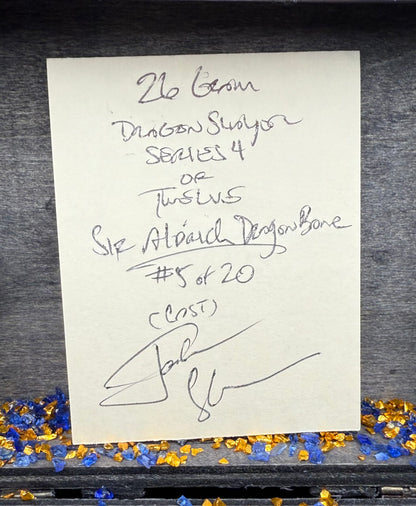 26 Gram
Dragon Slayer
SERIES 4
OF
TWELVE
SIR Aldrich DragonBane
#5 of 20
(CAST)